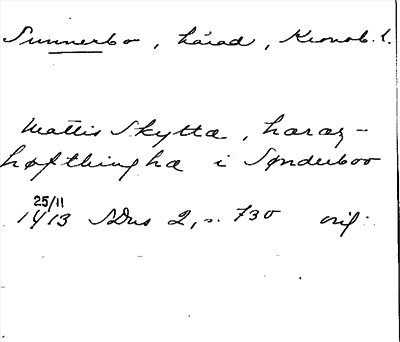 Sunnerbo, härad, Kronob. l.
Mattis Skytta, haraz-
høfthingha i Sønderboo
25/11
1413 SDns 2, s. 730 orig.